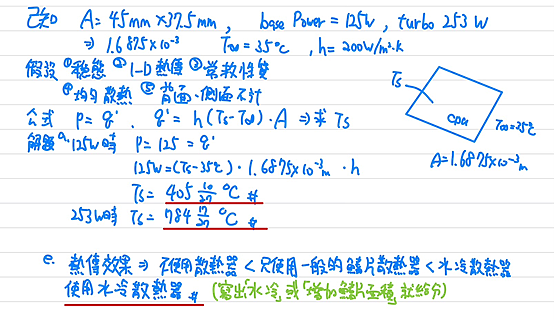 已知 A=45mm×37.5mm, base Power=125W, turbo 253W
⇒ 1.6875×10⁻³ T∞=35℃, h=200W/m²·K
假設 ①穩態 ②1-D熱傳 ③常數性質
④均勻散熱 ⑤背面、側面不計
公式 P=q' , q'=h(Ts-T∞)·A ⇒求Ts
解題 a. 125W時 P=125=q'
125W=(Ts-35℃)·1.6875×10⁻³m·h
Ts=405 10/27 ℃ #
253W時 Ts=784 17/27 ℃ #
Ts
cpu
T∞=35℃
A=1.6875×10⁻³m
e. 熱傳效果 ⇒ 不使用散熱器<只使用一般的鰭片散熱器<水冷散熱器
使用水冷散熱器 # (寫出「水冷」或「增加鰭片面積」就給分)